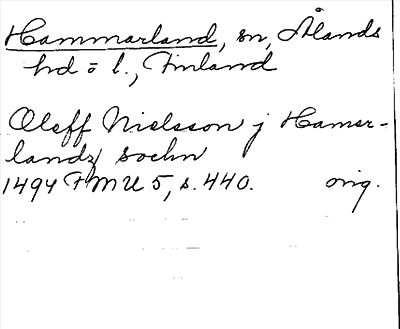 Hammarland, sn, Ålands
hd o l., Finland
Oleff Nielsson j Hamer-
landz sochn
1494 FMU 5, s. 440. orig.